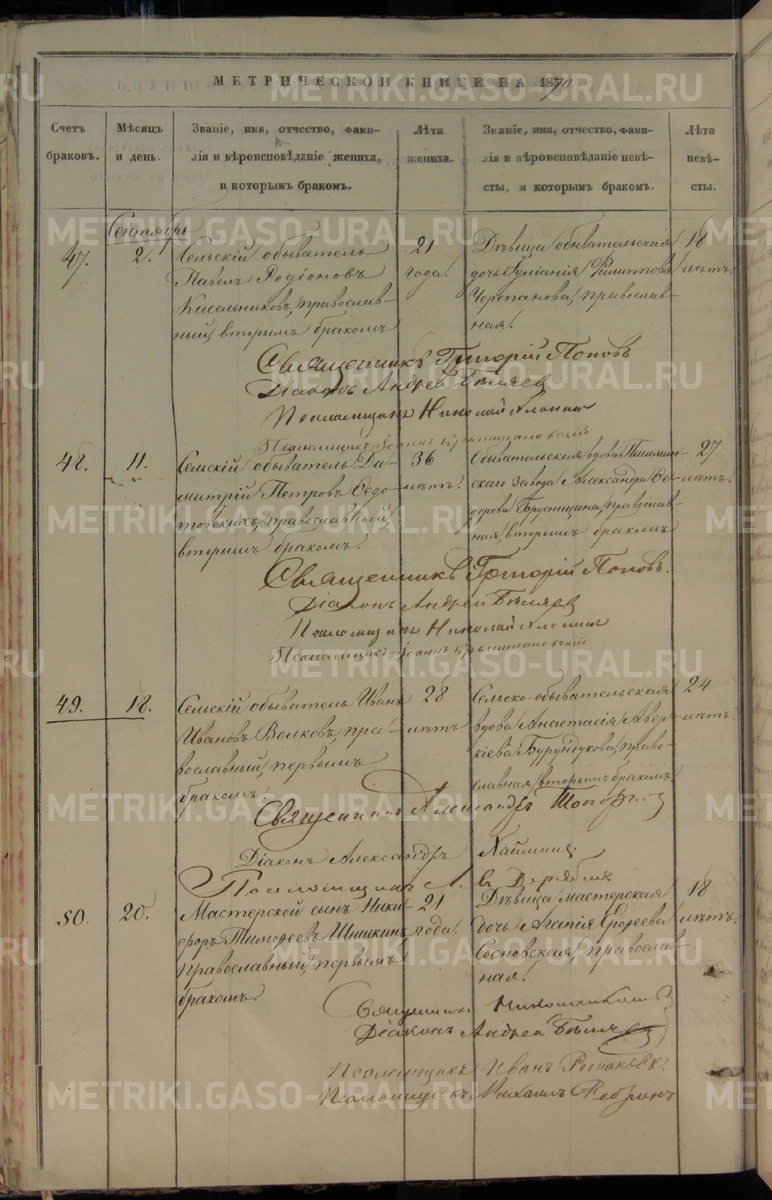 МЕТРИЧЕСКОЙ КНИГИ НА 1870
Счетъ браковъ.
Мѣсяцъ и день.
Званіе, имя, отчество, фами-
лія и вѣроисповѣданіе жениха,
и которымъ бракомъ.
Лѣта жениха.
Званіе, имя, отчество, фами-
лія и вѣроисповѣданіе невѣ-
сты, и которымъ бракомъ.
Лѣта невѣ-
сты.
Сентябрь
47.
2.
Сельскій обыватель
Павелъ Родіоновъ
Кисельниковъ, православ-
ный, вторымъ бракомъ
21
года.
Дѣвица обывательская
дочь Іуліанія Филиппова
Черепанова, православ-
ная.
18
лѣтъ.
Священникъ Григорій Поповъ
Діаконъ Андрей Бѣляев
Псаломщикъ Николай
Псаломщикъ Іоаннъ
48.
11.
Сельскій обыватель Ди-
митрій Петровъ Федо-
товскихъ, православный,
вторымъ бракомъ.
36
лѣтъ.
Обывательская вдова
скаго завода Александра Фе-
дорова Брусницина, православ-
ная, вторымъ бракомъ
27
лѣтъ.
Священникъ Григорій Поповъ.
Діаконъ Андрей Бѣляев
Псаломщикъ Николай
Псаломщикъ Іоаннъ
49.
18.
Сельскій обыватель Иванъ
Ивановъ Волковъ, пра-
вославный, первымъ
бракомъ.
28
лѣтъ
Сельско-обывательская
вдова Анастасія Авер-
кіева Бурундукова, право-
славная, вторымъ бракомъ
24
лѣтъ.
Священникъ Александръ
Діаконъ Александръ
Псаломщикъ
50.
20.
Мастерской сынъ Ники-
форъ Тимофеевъ Шишкинъ
православный, первымъ
бракомъ.
21
года.
Дѣвица, мастерская
дочь Агапія Фодеева
Сосновская, православ-
ная.
18
лѣтъ.
Священникъ
Діаконъ Андрей Бѣляев
Псаломщикъ Иванъ Романовъ.
Псаломщикъ Михаилъ Ребринъ
METRIKI.GASO-URAL.RU